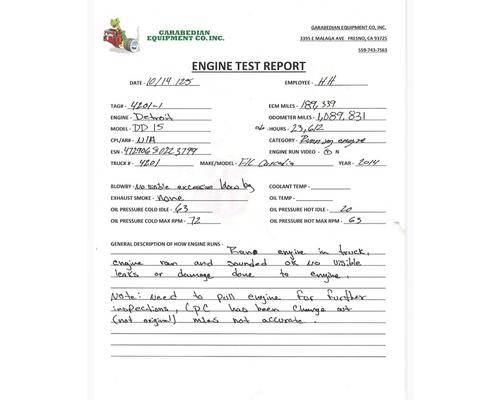 GARABEDIAN
EQUIPMENT CO, INC.
GARABEDIAN EQUIPMENT CO, INC.
3395 E MALAGA AVE FRESNO, CA 93725
559-743-7563
ENGINE TEST REPORT
DATE - 10/14/25 EMPLOYEE - HH
TAG# - 4201-1 ECM MILES - 189,339
ENGINE - Detroit ODOMETER MILES - 1,089,831
MODEL - DD 15 HOURS - 23,612
CPL/AR# - N/A CATEGORY - Running engine
ESN - 472906S0223799 ENGINE RUN VIDEO - Y N
TRUCK # - 4201 MAKE/MODEL - F/L Cascadia YEAR - 2014
BLOWBY - No visible excessive blow by COOLANT TEMP -
EXHAUST SMOKE - None OIL TEMP -
OIL PRESSURE COLD IDLE - 63 OIL PRESSURE HOT IDLE - 20
OIL PRESSURE COLD MAX RPM - 72 OIL PRESSURE HOT MAX RPM - 63
GENERAL DESCRIPTION OF HOW ENGINE RUNS - engine in truck,
engine ran and sounded ok no visible
leaks or damage done to engine.
Note: need to pull engine for further
inspections, CPC has been change out
(not original) miles not accurate.